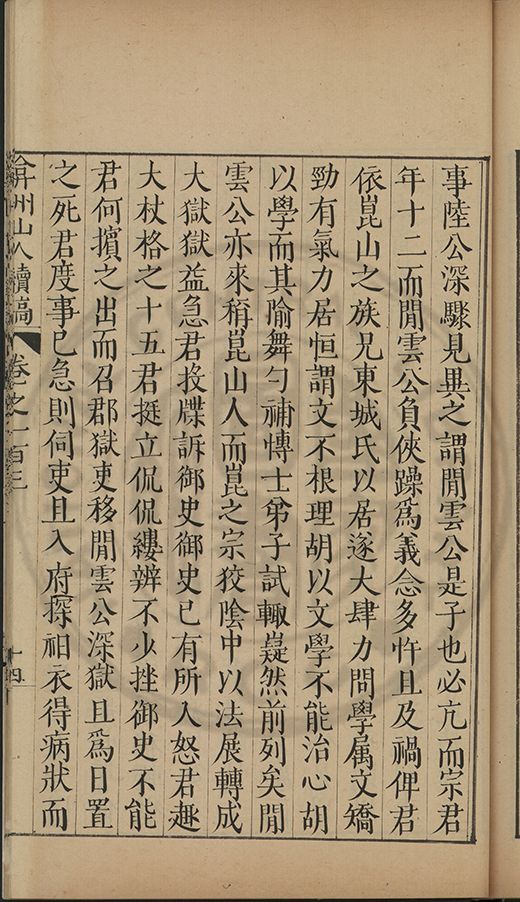 事陸公深驟見異之謂閒雲公是子也必亢而宗君
年十二而閒雲公負俠躁爲義念多忤且及禍俾君
依崑山之族兄東城氏以居遂大肆力問學属文矯
勁有氣力居恒謂文不根理胡以文學不能治心胡
以學而其隃舞勺補愽士弟子試輙嶷然前列矣閒
雲公亦來稱崑山人而崑之宗狡陰中以法展轉成
大獄獄益急君投牒訴御史御史已有所入怒君趣
大杖格之十五君挺立侃侃縷辨不少挫御史不能
君何擯之出而召郡獄吏移閒雲公深獄且爲日置
之死君度事已急則伺吏且入府探袒衣得病狀而
弇州山人續稿 卷之一百三 十四